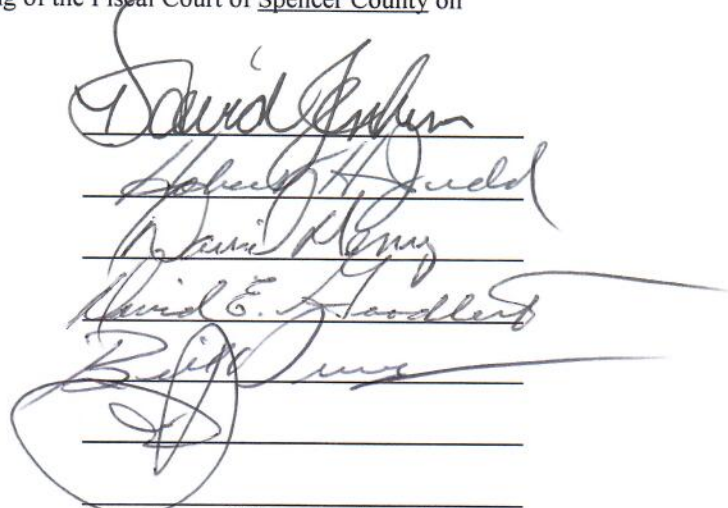 g of the Fiscal Court of Spencer County on
David Jenkins
Robert H. Judd
David Henry
David E. Goodlett